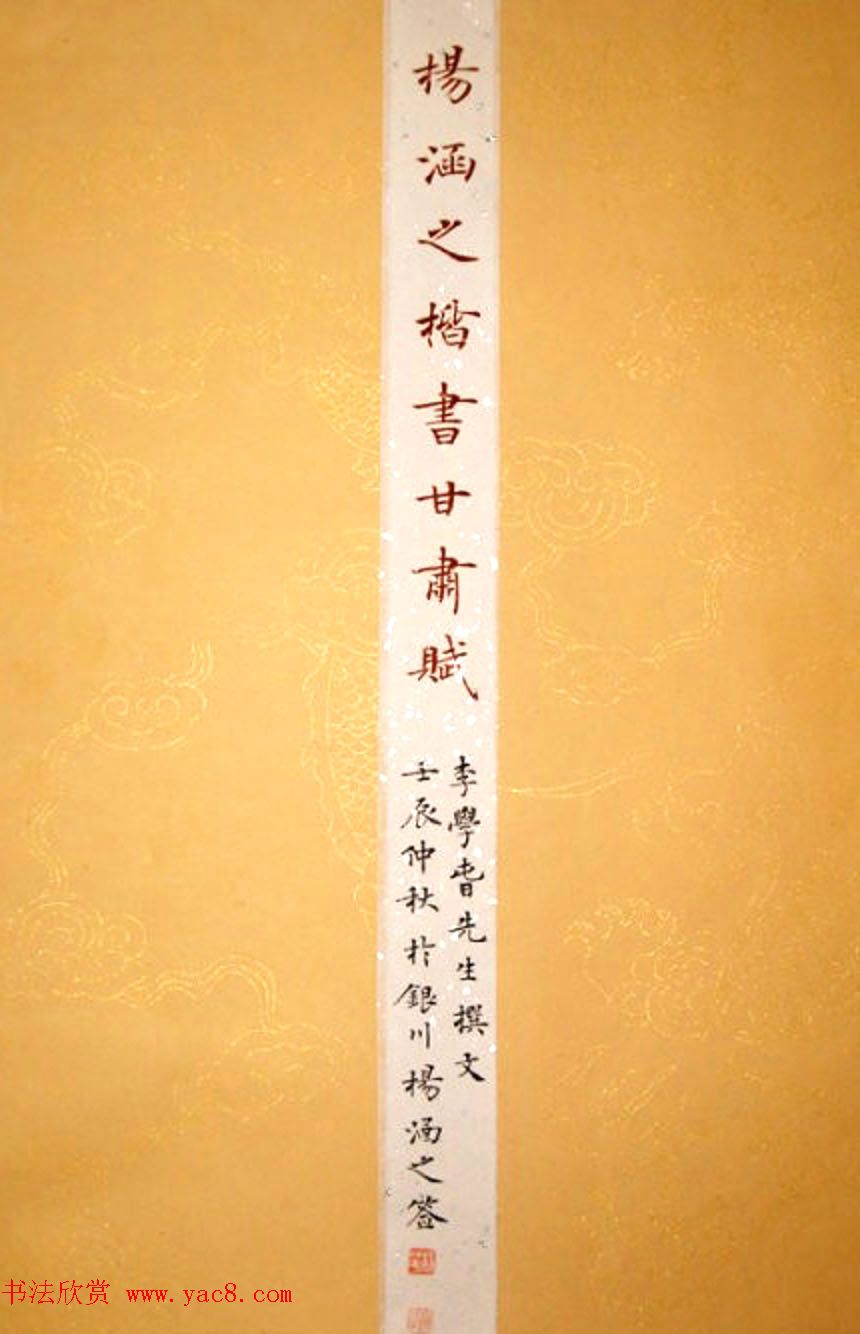 楊涵之楷書甘肅賦
李學旾先生撰文
壬辰仲秋於銀川楊涵之签
书法欣赏 www.yac8.com